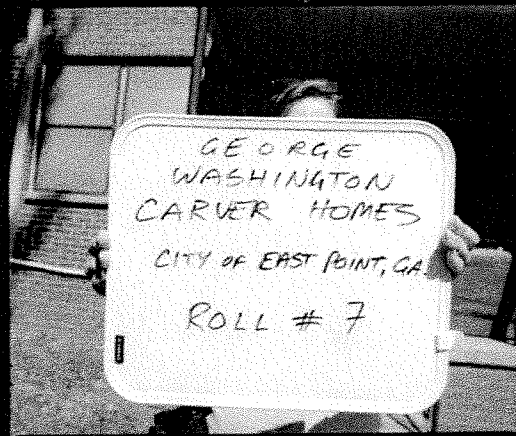 GEORGE
WASHINGTON
CARVER HOMES
CITY OF EAST POINT, GA.
ROLL # 7